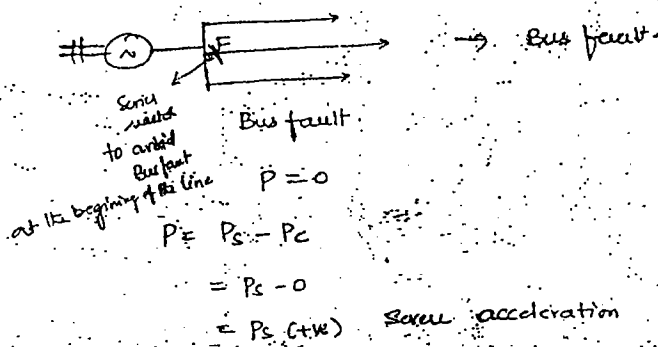 F
→ Bus fault.
Series
to avoid
Bus fault
at the begining of the line
Bus fault.
P = 0
P = Ps - Pc
= Ps - 0
= Ps (+ve) severe acceleration